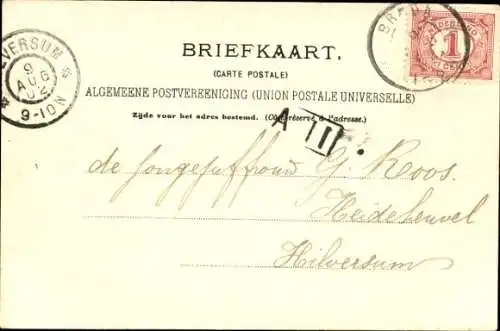 BRIEFKAART.
(CARTE POSTALE)
ALGEMEENE POSTVEREENIGING (UNION POSTALE UNIVERSELLE)
Zijde voor het adres bestemd. (Côté réservé à l'adresse.)
HILVERSUM
9
AUG
02
9-10N
BREDA
NEDERLAND
1
CENT
A II
de Jongejuffrouw G. Koos.
Heideheuvel
Hilversum